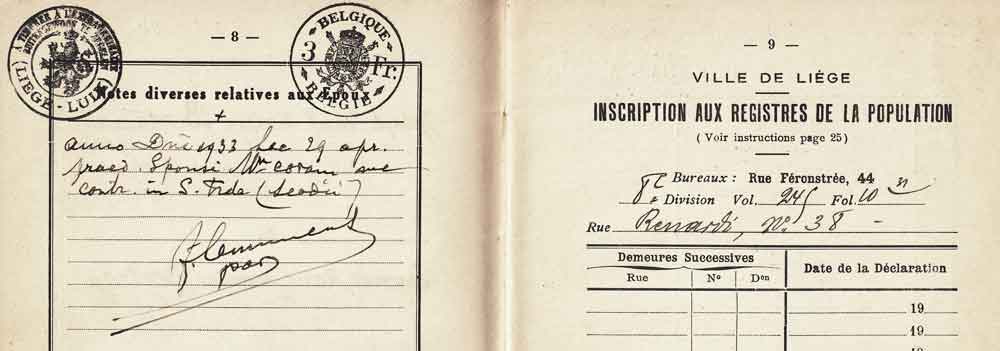 — 8 —
BELGIQUE
3 Fr.
BELGIË
LIÉGE-LUIK
Notes diverses relatives aux Epoux
anno Dni 1933 hac 29 apr.
praed. Sponsi Mm coram me
contr. in S. Fide (Leodii)
— 9 —
VILLE DE LIÉGE
INSCRIPTION AUX REGISTRES DE LA POPULATION
( Voir instructions page 25 )
Bureaux : Rue Féronstrée, 44
8e Division Vol. 245 Fol. 10
Rue Renardi, no. 38 -
Demeures Successives
Date de la Déclaration
Rue No Don
19
19
19